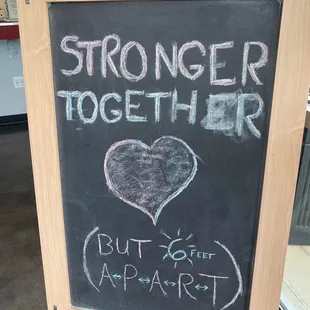 STRONGER
TOGETHER
(BUT 6 FEET
A↔P↔A↔R↔T)